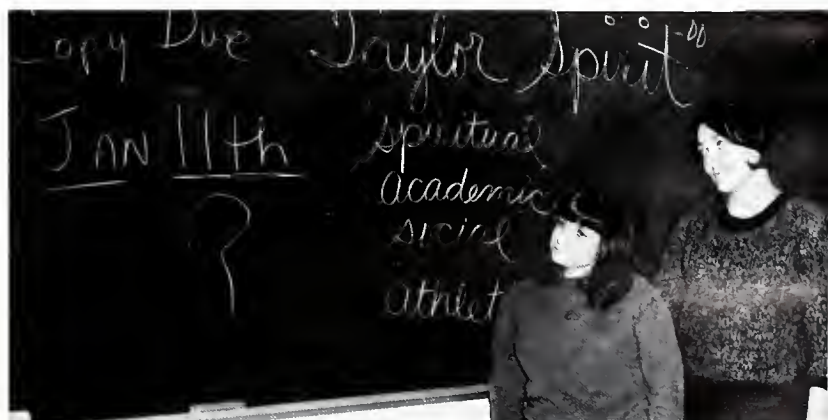 Copy Due
JAN 11th
?
Taylor Spirit
spiritual
academic
social
athlet